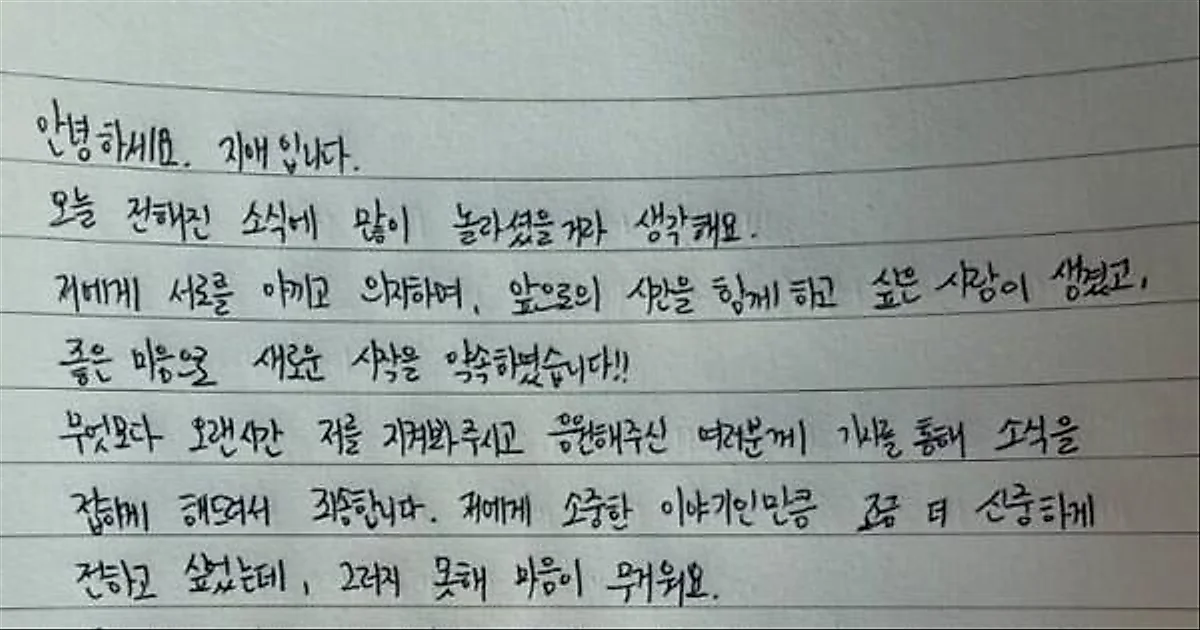 안녕하세요. 지애입니다.
오늘 전해진 소식에 많이 놀라셨을거라 생각해요.
저에게 서로를 아끼고 의지하며, 앞으로의 시간을 함께 하고 싶은 사람이 생겼고,
좋은 마음으로 새로운 시작을 약속하였습니다!!
무엇보다 오랜시간 저를 지켜봐주시고 응원해주신 여러분께 기사를 통해 소식을
접하게 해드려서 죄송합니다. 저에게 소중한 이야기인만큼 조금 더 신중하게
전하고 싶었는데, 그러지 못해 마음이 무거워요.